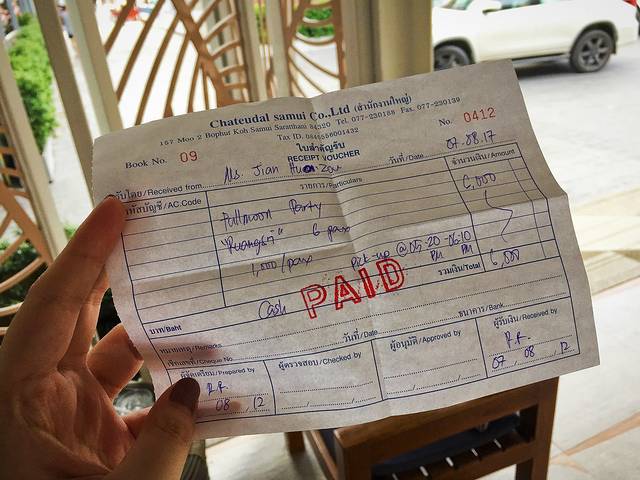 Chateudal samui Co.,Ltd (สำนักงานใหญ่)
167 Moo 2 Bophut Koh Samui Suratthani 84320 Tel. 077-230188 Fax. 077-230139
Tax ID.
Book No. 09 ใบสำคัญรับ No. 0412
RECEIPT VOUCHER
รับโดย/Received from Ms. Jian วันที่/Date 07.08.17
รหัสบัญชี/AC.Code รายการ/Particulars จำนวนเงิน/Amount
Fullmoon Party 6,000
6 pax
1,000/pax Pick-up @ 05.20-06.10
PM PM
รวมเงิน/Total 6,000
บาท/Baht Cash PAID
หมายเหตุ/Remarks
เช็คเลขที่/Cheque No. วันที่/Date ธนาคาร/Bank
ผู้จัดเตรียม/Prepared by ผู้ตรวจสอบ/Checked by ผู้อนุมัติ/Approved by ผู้รับเงิน/Received by
R.R. R.R.
08 / 17 07 / 08 / 17